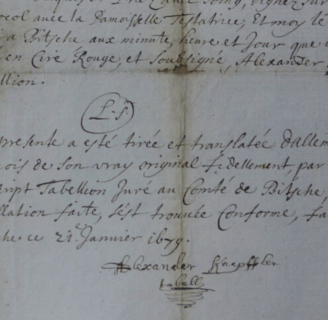 avec la Damoiselle Testatrice, Et moy le
a Bitsche aux minute, heure et Jour que
en Cire Rouge, et Soubsigné, Alexander
llion.
L.S
presente a esté tirée et translatée d'allem
ois de son vray original fidellement, par
ript Tabellion Juré au Comté de Bitsche
llation faite, s'est trouuée Conforme, fa
che ce 21e Janvier 1679.
Alexander
tabell